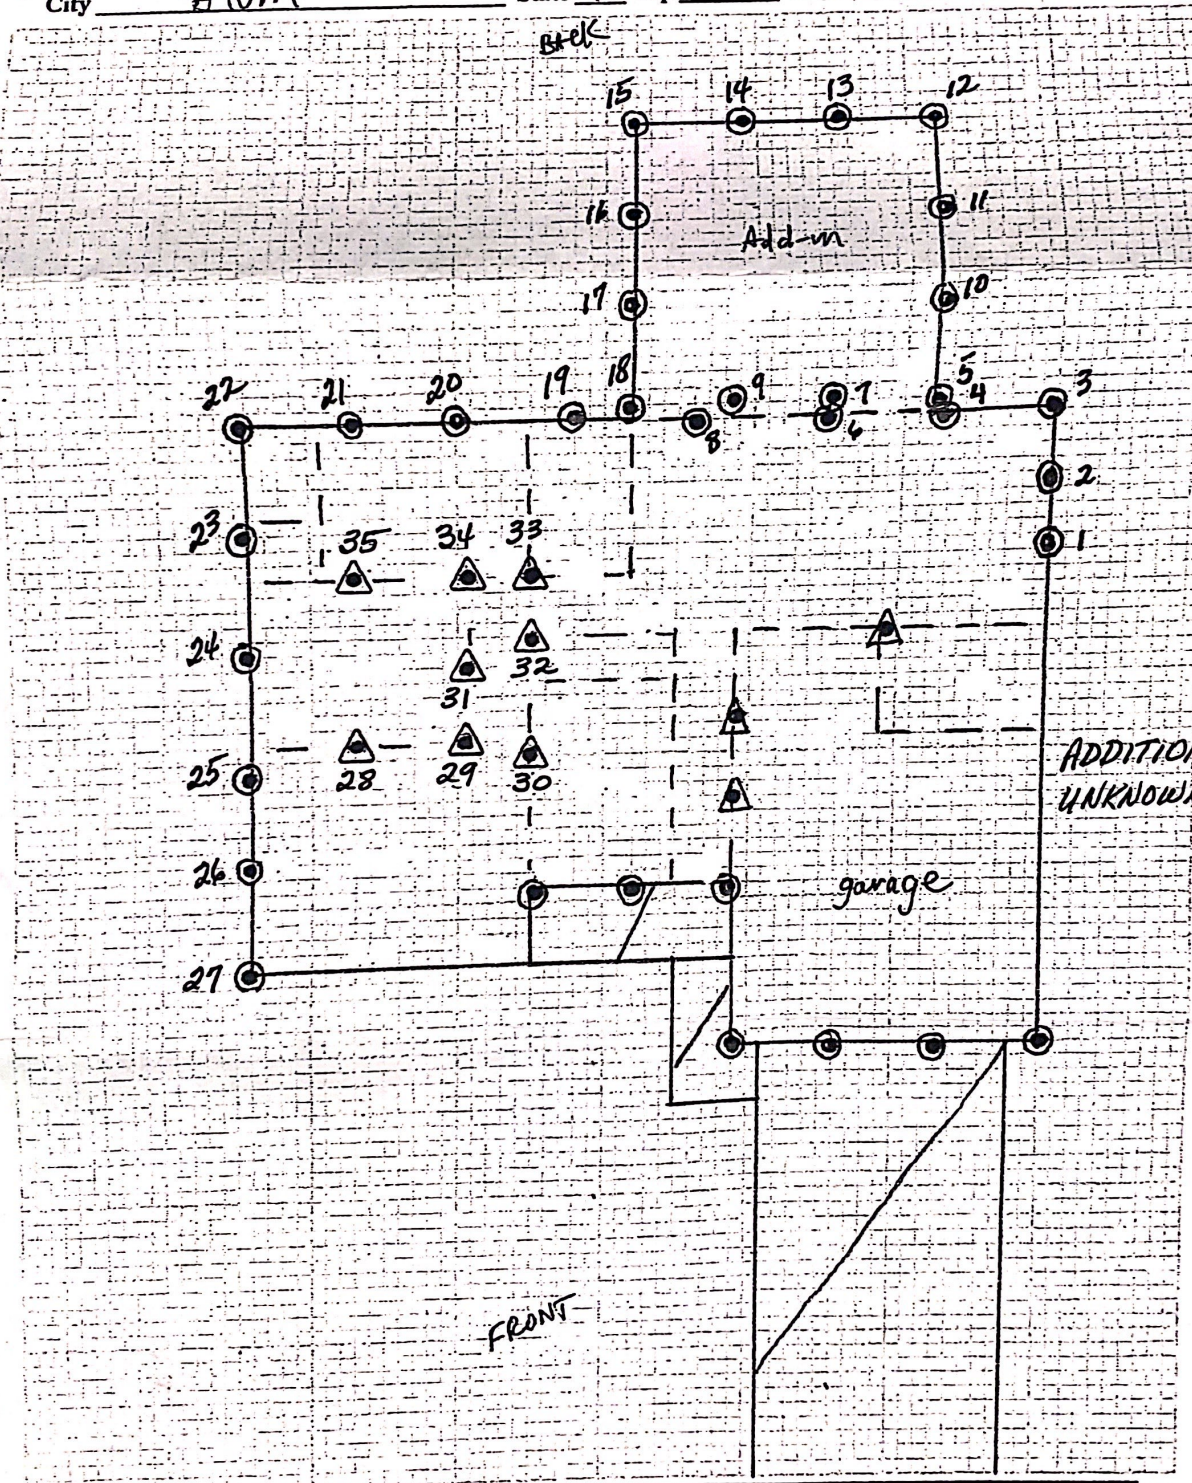 City
BACK
15 14 13 12
16 11
Add-on
17 10
22 21 20 19 18 9 7 5 4 3
8 6
2
23 35 34 33 1
24 32
31
ADDITION
25 28 29 30 UNKNOWN
26 garage
27
FRONT